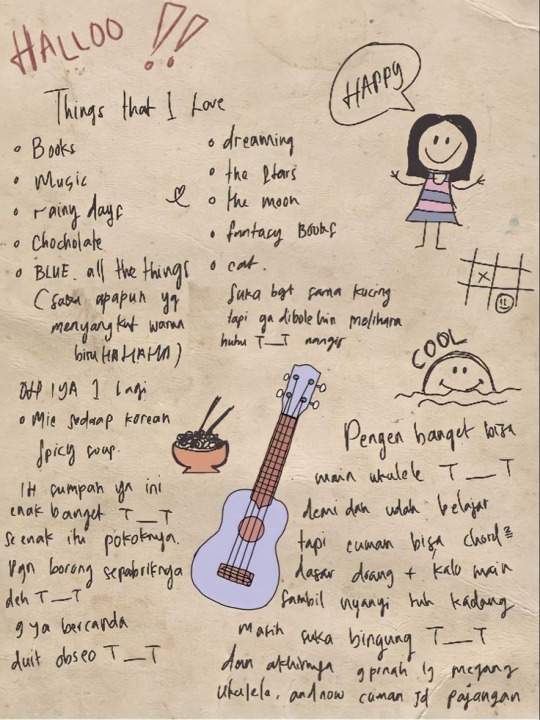 HALLOO !!
HAPPY
Things that I Love
• Books
• Music
• rainy days
• Chocholate
• BLUE. all the things
(suka apapun yg
menyangkut warna
biru HAHAHA)
• dreaming
• the stars
• the moon
• fantasy Books
• cat.
suka bgt sama kucing
tapi ga dibolehin melihara
huhu T_T nangis
COOL
OH IYA 1 lagi
• Mie sedaap korean
spicy soup.
IH sumpah ya ini
enak banget T_T
seenak itu pokoknya.
Pgn borong sepabriknya
deh T_T
g ya bercanda
duit T_T
Pengen banget bisa
main ukulele T_T
demi dah udah belajar
tapi cuman bisa chord²
dasar doang + kalo main
sambil nyanyi tuh kadang
masih suka bingung T_T
dan akhirnya gpernah lg megang
ukulele. and now cuman jd pajangan